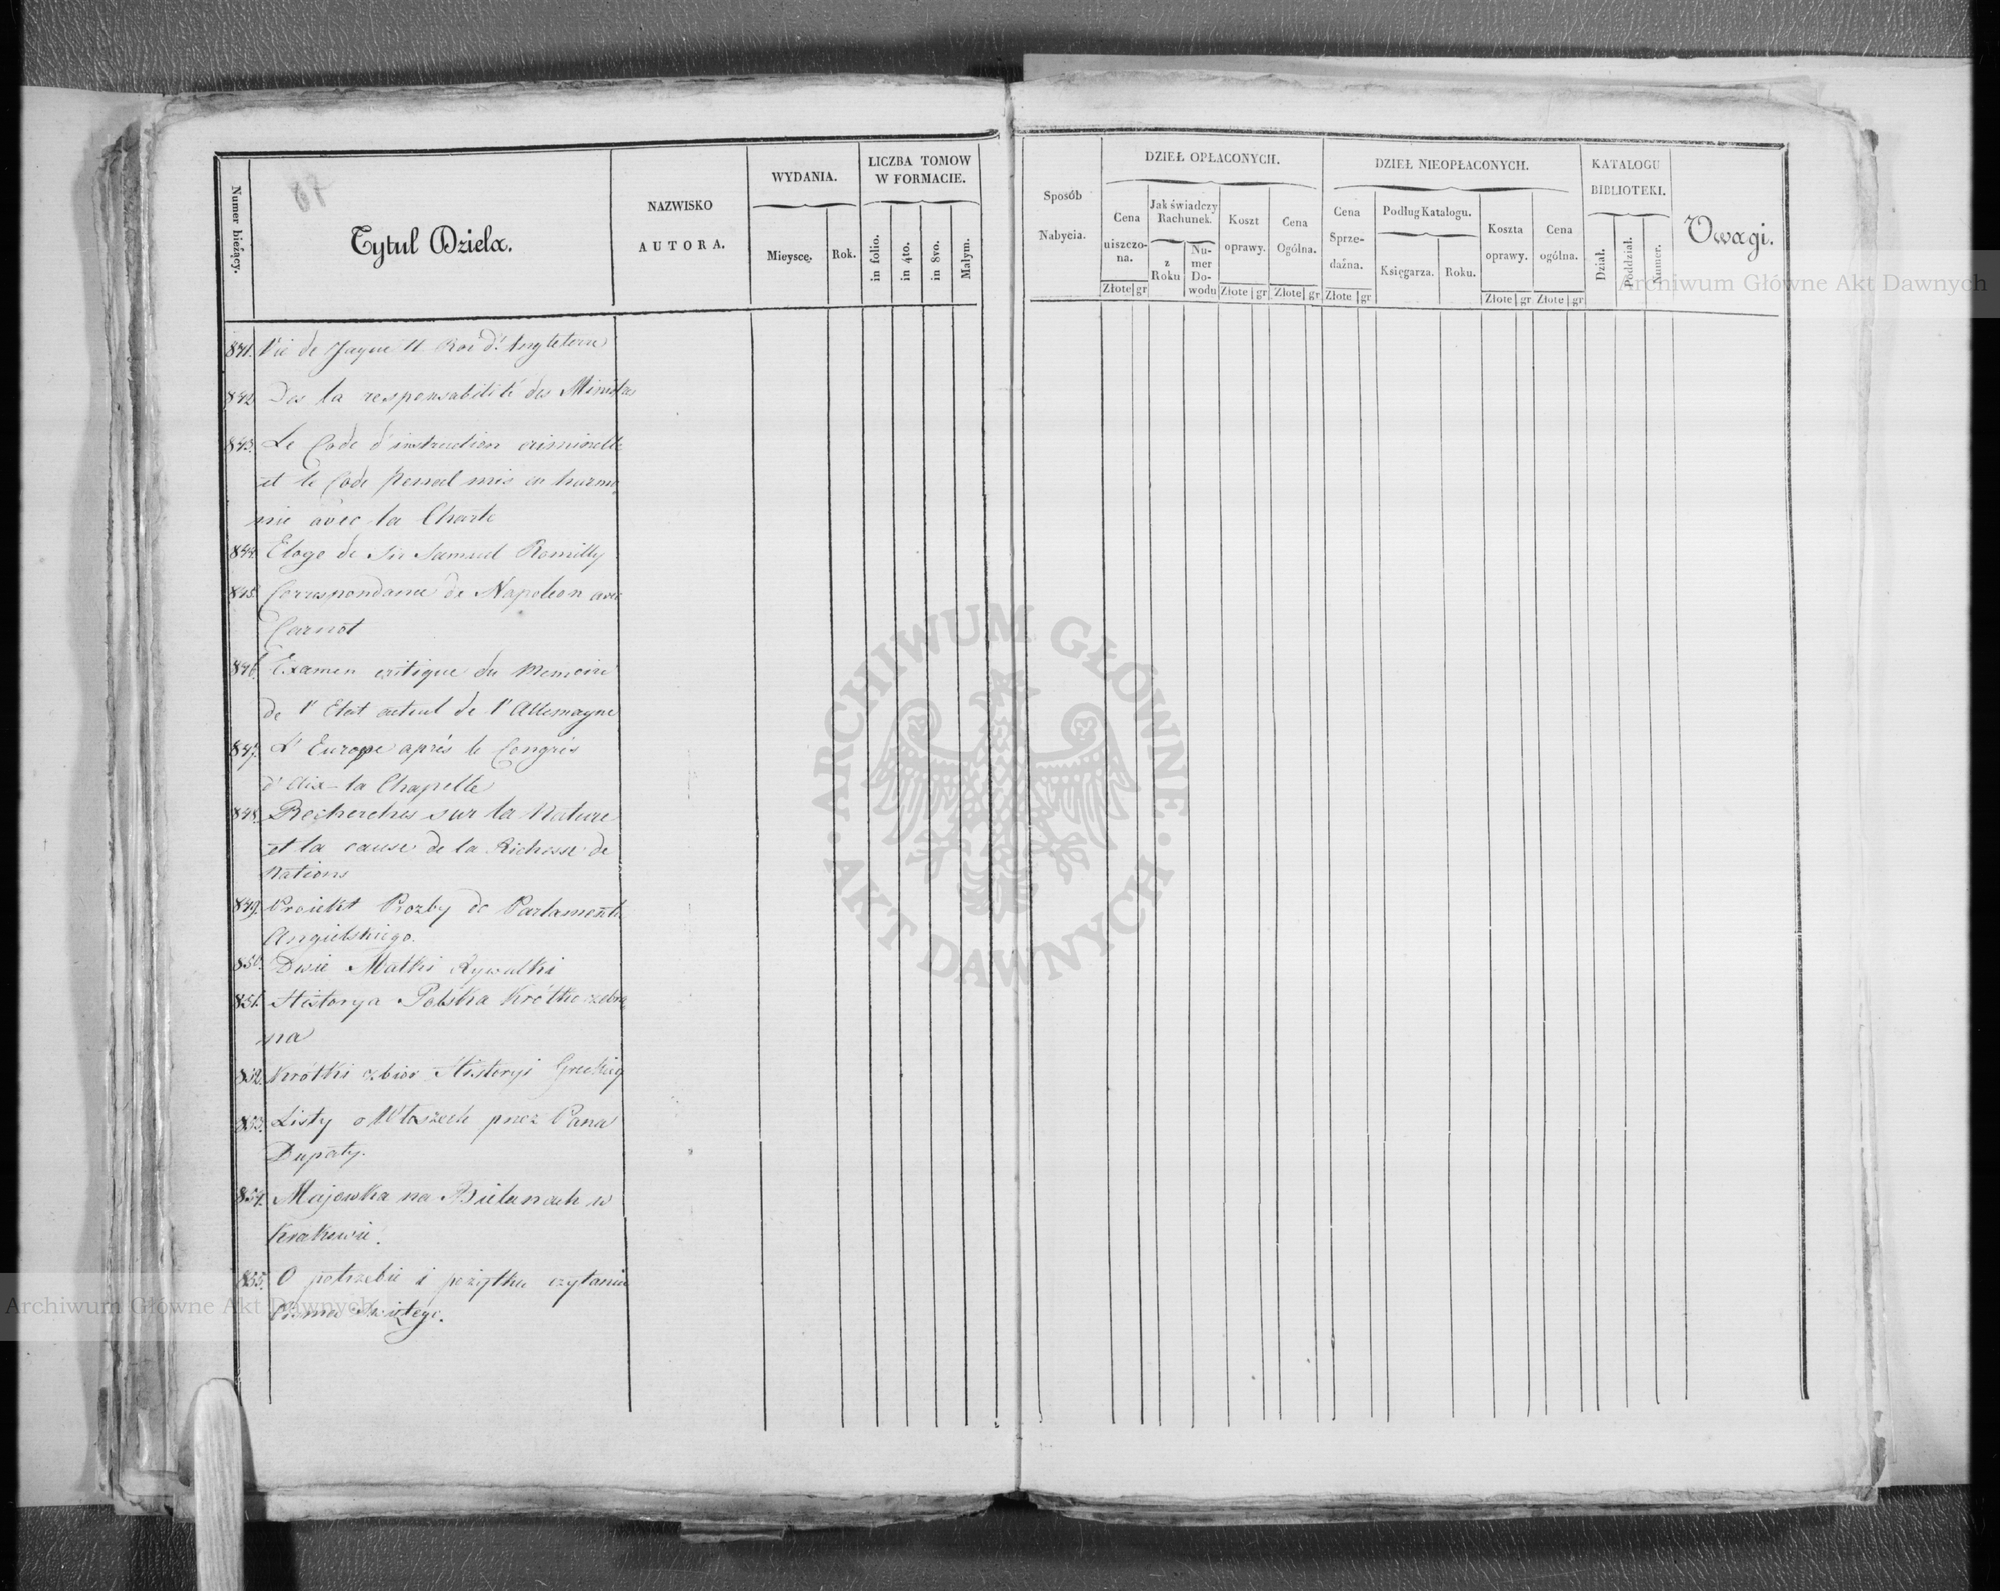 Numer bieżący.
Tytuł Dzieła.
NAZWISKO
AUTORA.
WYDANIA.
Mieysce.
Rok.
LICZBA TOMOW
W FORMACIE.
in folio.
in 4to.
in 8vo.
Małym.
Sposób
Nabycia.
DZIEŁ OPŁACONYCH.
Cena
uiszczo-
na.
Złote gr
Jak świadczy
Rachunek.
z
Roku
Nu-
mer
Do-
wodu
Koszt
oprawy.
Złote gr
Cena
Ogólna.
Złote gr
DZIEŁ NIEOPŁACONYCH.
Cena
Sprze-
dażna.
Złote gr
Podług Katalogu.
Księgarza.
Roku.
Koszta
oprawy.
Złote gr
Cena
ogólna.
Złote gr
KATALOGU
BIBLIOTEKI.
Dział.
Poddział.
Numer.
Uwagi.
841. Vie de Jaque II. Roi d'Angleterre
842. Des la responsabilité des Ministres
843. Le Code d'instruction criminelle
et le Code penal mis en harmo
nie avec la Charte
844. Eloge de Sir Samuel Romilly
845. Correspondance de Napoleon avec
Carnot
846. Examen critique du Memoire
de l'Etat actuel de l'Allemagne
847. L'Europe aprés le Congrés
d'Aix-la Chapelle
848. Recherches sur la Nature
et la cause de la Richesse de
Nations
849. Proiekt Prozby do Parlamentu
Angielskiego.
850. Dwie Matki Rywalki
851. Historya Polska Krótko zebra
na
852. Krótki zbior Historyi Greckiey
853. Listy o Włoszech przez Pana
Dupaty.
854. Majowka na Bielanach w
Krakowie.
855. O potrzebie i pożytku czytania
Pisma Świętego.
ARCHIWUM GŁÓWNE
AKT DAWNYCH
Archiwum Główne Akt Dawnych
Archiwum Główne Akt Dawnych